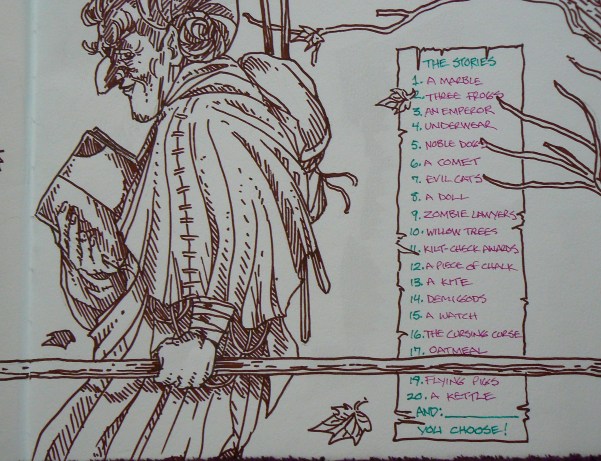 THE STORIES
1. A MARBLE
2. THREE FROGS
3. AN EMPEROR
4. UNDERWEAR
5. NOBLE DOGS
6. A COMET
7. EVIL CATS
8. A DOLL
9. ZOMBIE LAWYERS
10. WILLOW TREES
11. KILT-CHECK AWARDS
12. A PIECE OF CHALK
13. A KITE
14. DEMIGODS
15. A WATCH
16. THE CURSING CURSE
17. OATMEAL
19. FLYING PIGS
20. A KETTLE
AND:
YOU CHOOSE!